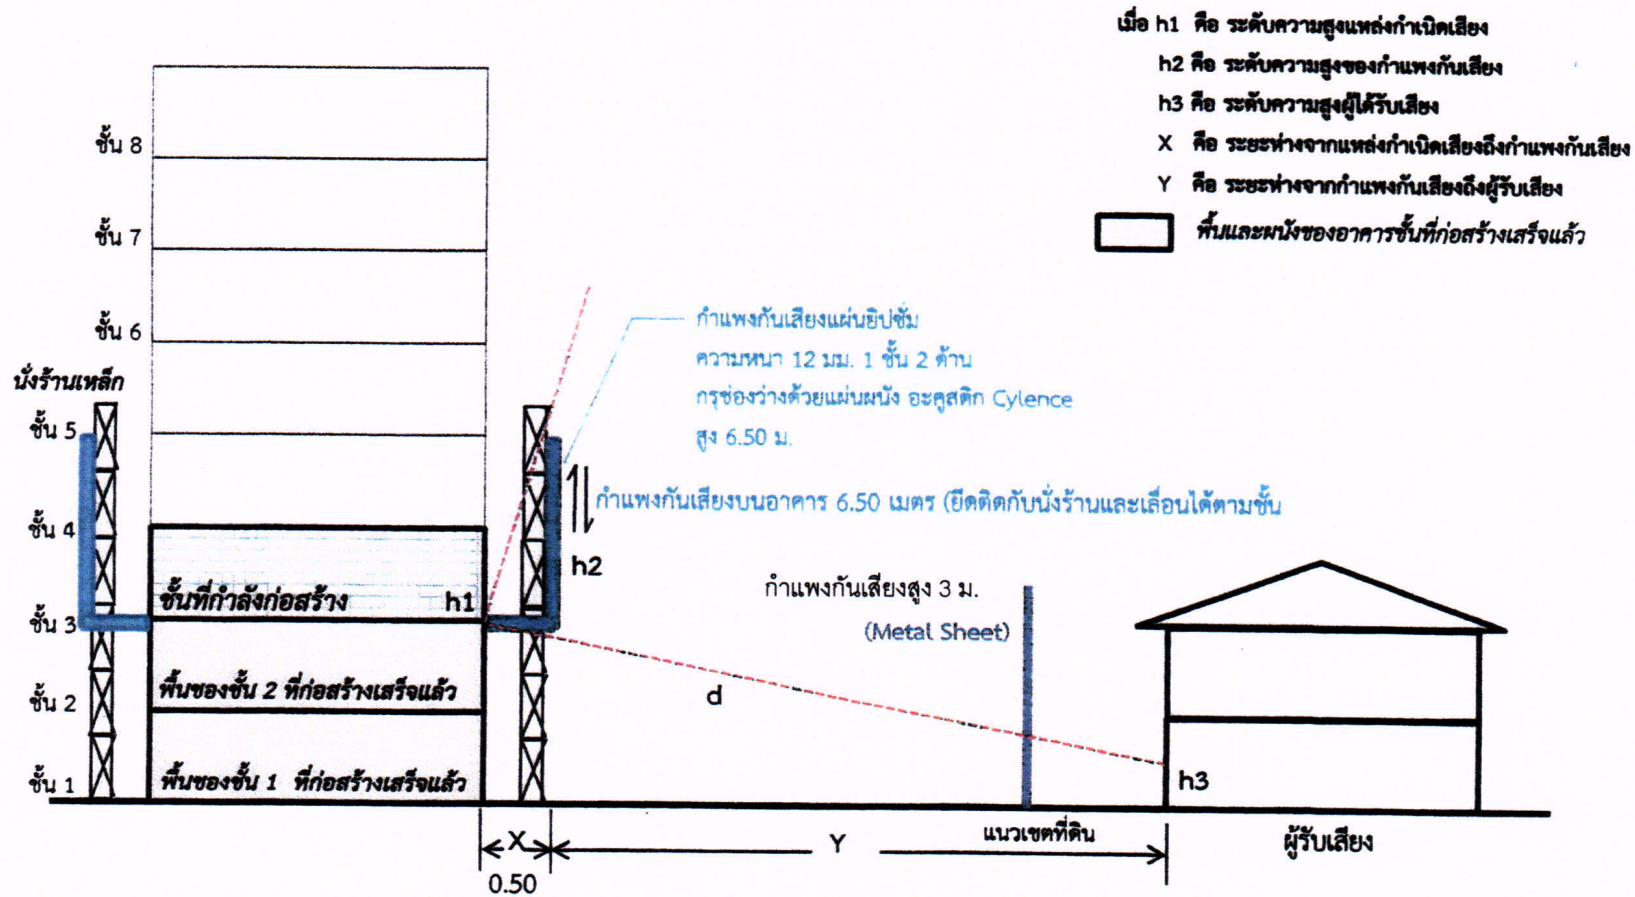 เมื่อ h1 คือ ระดับความสูงแหล่งกำเนิดเสียง
h2 คือ ระดับความสูงของกำแพงกันเสียง
h3 คือ ระดับความสูงผู้ได้รับเสียง
X คือ ระยะห่างจากแหล่งกำเนิดเสียงถึงกำแพงกันเสียง
Y คือ ระยะห่างจากกำแพงกันเสียงถึงผู้รับเสียง
พื้นและผนังของอาคารชั้นที่ก่อสร้างเสร็จแล้ว
ชั้น 8
ชั้น 7
ชั้น 6
นั่งร้านเหล็ก
ชั้น 5
ชั้น 4
ชั้น 3
ชั้น 2
ชั้น 1
กำแพงกันเสียงแผ่นยิปซั่ม
ความหนา 12 มม. 1 ชั้น 2 ด้าน
กรุช่องว่างด้วยแผ่นผนัง อะคูสติก Cylence
สูง 6.50 ม.
กำแพงกันเสียงบนอาคาร 6.50 เมตร (ยึดติดกับนั่งร้านและเลื่อนได้ตามชั้น
h2
ชั้นที่กำลังก่อสร้าง h1
กำแพงกันเสียงสูง 3 ม.
(Metal Sheet)
พื้นของชั้น 2 ที่ก่อสร้างเสร็จแล้ว
d
พื้นของชั้น 1 ที่ก่อสร้างเสร็จแล้ว
h3
X
Y
แนวเขตที่ดิน
ผู้รับเสียง
0.50